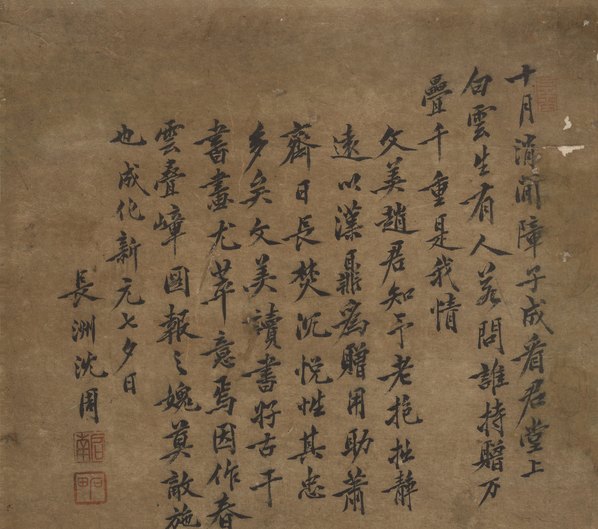 十月消閒障子成看君堂上
白雲生有人若問誰持贈万
疊千重是我情
文美趙君知予老抱拙靜
遠以漢鼎為贈用助蕭
齋日長焚沉悅性其忠
多矣文美讀書好古于
書畫尤萃意焉因作春
雲疊嶂圖報之媿莫敵施
也成化新元七夕日
長洲沈周
啟南